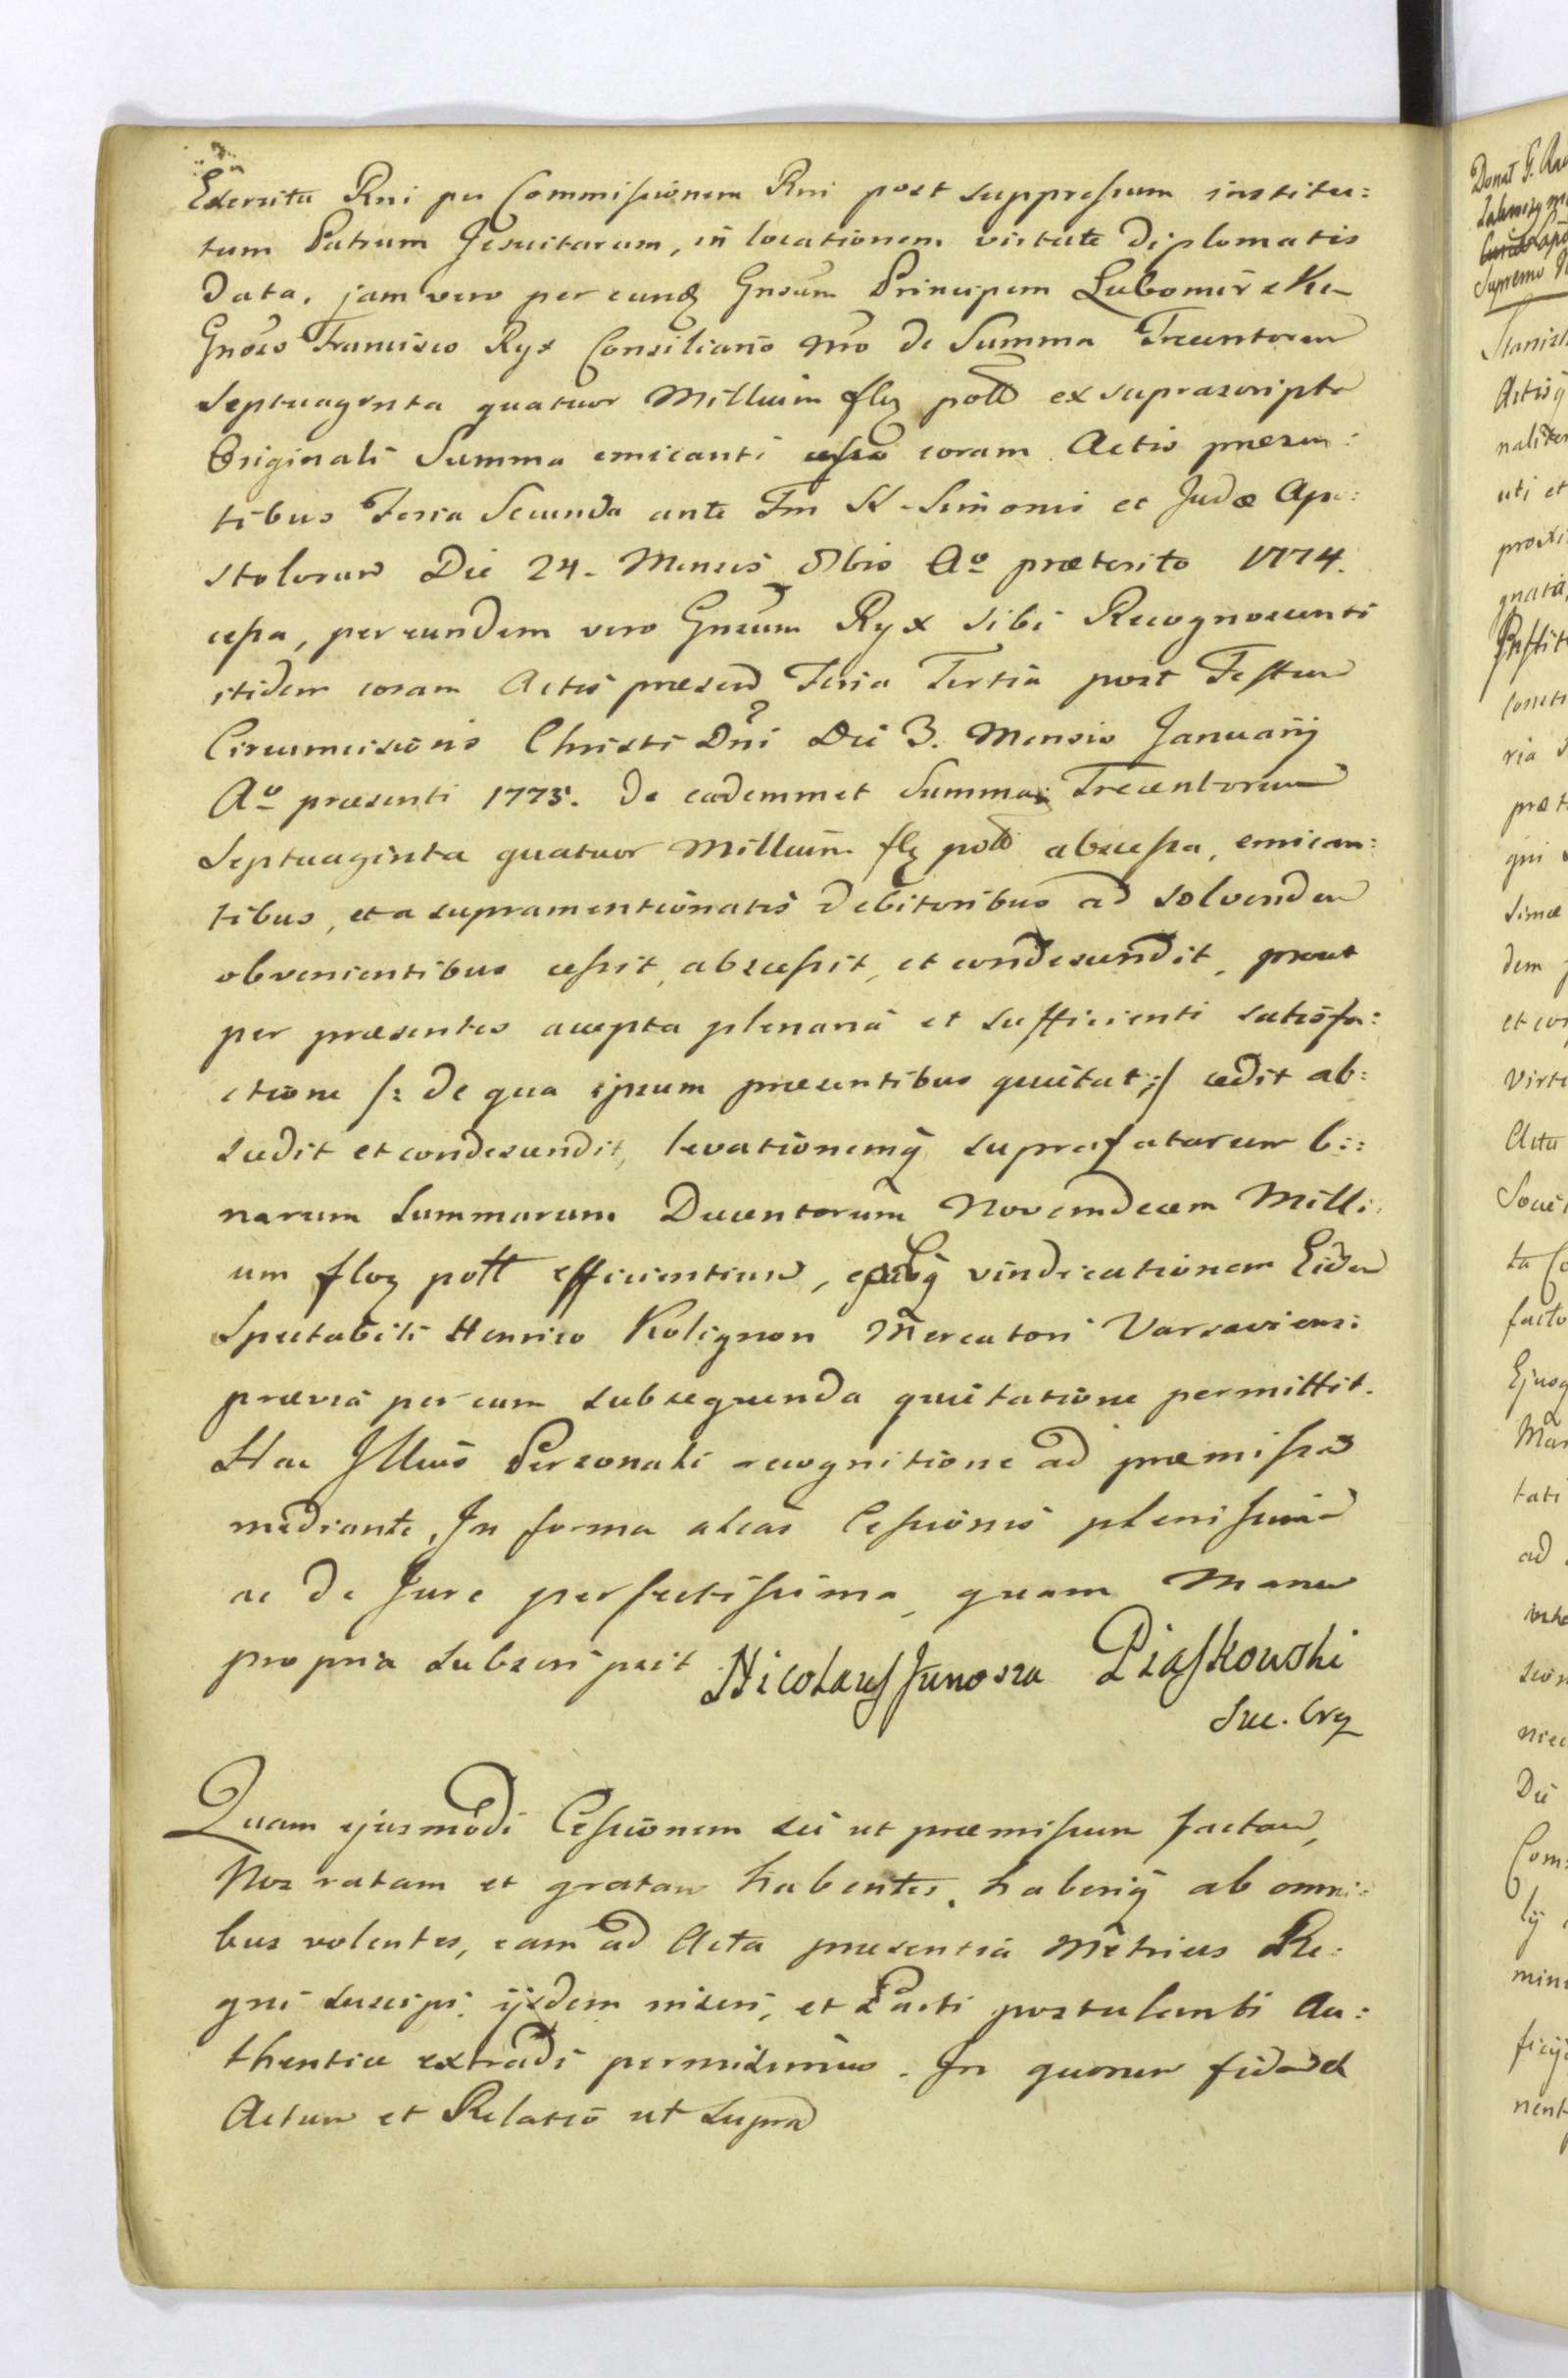 Exercitu Rni per Commissionem Rni post suppressum institu:
tum Patrum Jesuitarum, in locationem virtute Diplomatis
data, jam vero per eund Gnsum Principem Lubomirski
Gnoso Francisco Ryx Consiliario Nro de Summa Trecentorum
Septuaginta quatuor Millium flor poll ex suprascripta
Originali Summa emicanti cessa coram Actis præsen:
tibus Feria Secunda ante Fm SS. Simonis et Judæ Apo:
stolorum Die 24. Mensis 8bris Ao præterito 1774.
cessa, per eundem vero Gnsum Ryx sibi Recognoscenti
itidem coram Actis præsend Feria Tertia post Festum
Circumcisionis Christi Dni Die 3. Mensis Januarij
Ao præsenti 1775. de eademmet Summa Trecentorum
Septuaginta quatuor Millium flor poll abscessa, emican:
tibus, et a supramentionatis Debitoribus ad solvendum
obvenientibus cessit, abscessit, et condescendit, prout
per præsentes accepta plenaria et sufficienti satisfa:
ctione /: de qua ipsum præsentibus quietat :/ cedit ab:
scedit et condescendit, levationemq suprafatarum bi:
narum Summarum Ducentorum Novemdecem Milli:
um flor poll efficientium, vindicationem Eidem
Spectabili Henrico Kolignon Mercatori Varsaviensi
prævia per eum subsequenda quietatione permittit.
Hac Illius Personali recognitione ad præmissa
mediante, In forma alias Cessionis plenissima
ac de Jure perfectissima, quam Manu
propria subscripsit Nicolaus Junosza Piaskowski
Suc. Crz
Quam ejusmodi Cessionem sic ut præmissum factam,
Nos ratam et gratam habentes, haberiq ab omni:
bus volentes, eam ad Acta præsentia Metrices Re:
gni suscipi, ijsdem inseri, et Parti postulanti Au:
thentice extradi permisimus. In quorum fidem
Actum et Relatio ut supra
Donat
Supremo
Stanisl
Actisq
naliter
uti et
proxi
gnata,
Constit
ria
præt
qui
simæ
dem
et con
Virtu
Actu
Socie
ta Co
facto
Ejusq
Mar
tati
ad
inte
sion
nec
Die
Com:
lij
mini
ficij
nent